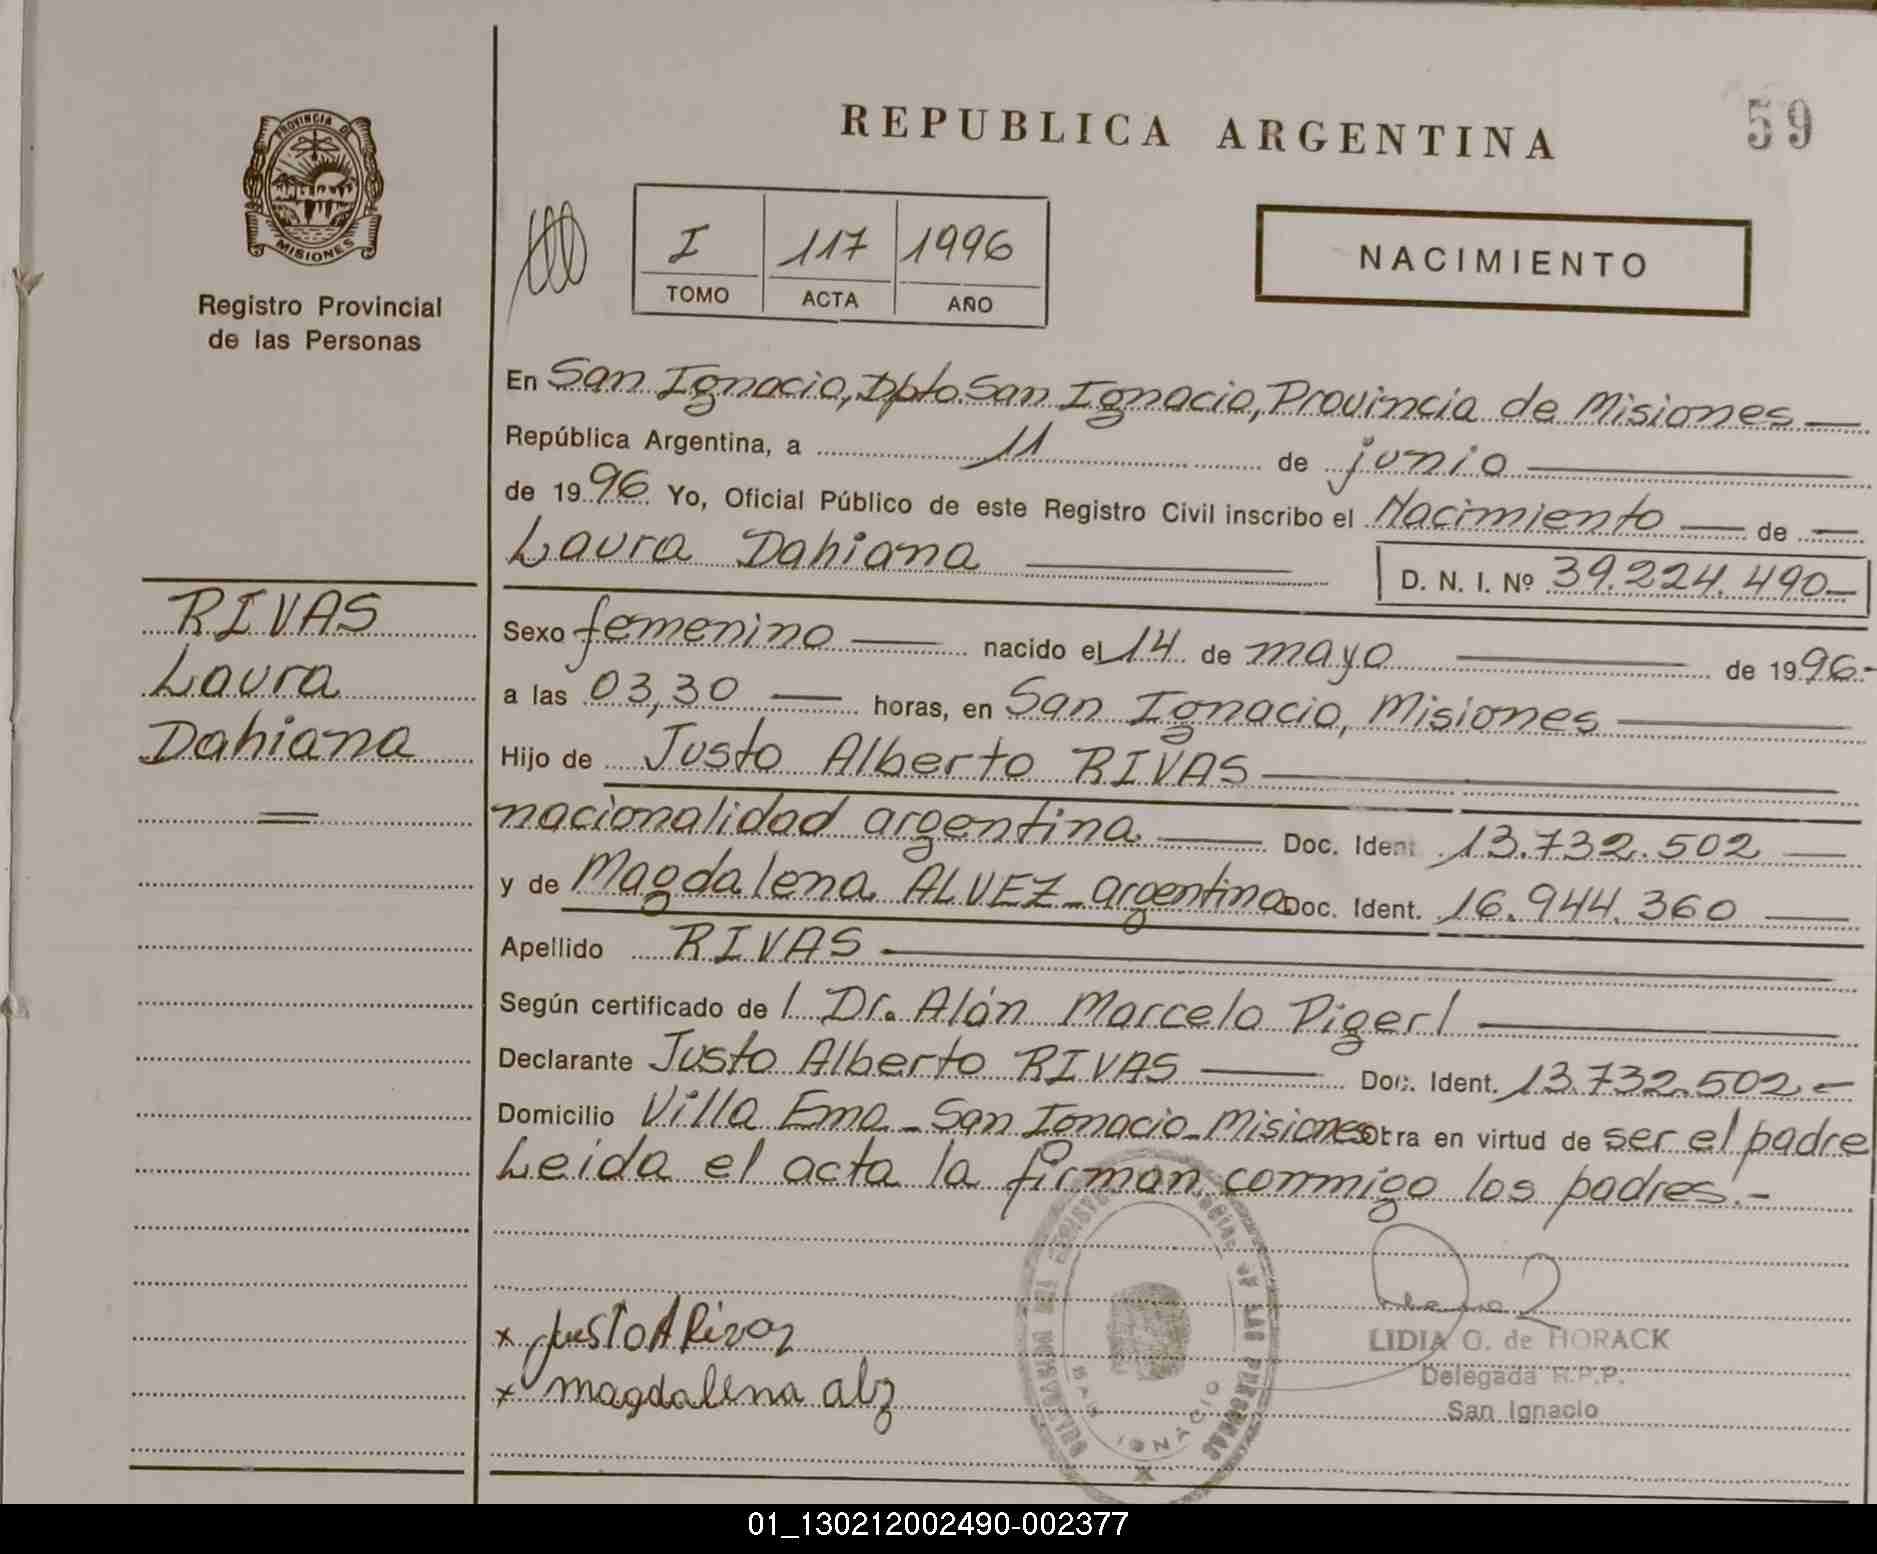 REPUBLICA ARGENTINA
59
PROVINCIA DE
MISIONES
Registro Provincial
de las Personas
I 117 1996
TOMO ACTA AÑO
NACIMIENTO
En San Ignacio, Dpto. San Ignacio, Provincia de Misiones
República Argentina, a 11 de junio
de 1996 Yo, Oficial Público de este Registro Civil inscribo el Nacimiento de
Laura Dahiana D. N. I. Nº 39.224.490
RIVAS
Laura
Dahiana
Sexo femenino nacido el 14 de mayo de 1996.-
a las 03,30 horas, en San Ignacio, Misiones
Hijo de Justo Alberto RIVAS
nacionalidad argentina Doc. Ident. 13.732.502
y de Magdalena ALVEZ - argentina Doc. Ident. 16.944.360
Apellido RIVAS
Según certificado de l Dr. Alán Marcelo Digerl
Declarante Justo Alberto RIVAS Doc. Ident. 13.732.502 -
Domicilio Villa Ema - San Ignacio - Misiones obra en virtud de ser el padre
Leída el acta la firman conmigo los padres.-
x Justo A Rivas
x magdalena alz
LIDIA G. de HORACK
Delegada R.P.P.
San Ignacio
SAN IGNACIO
01_130212002490-002377